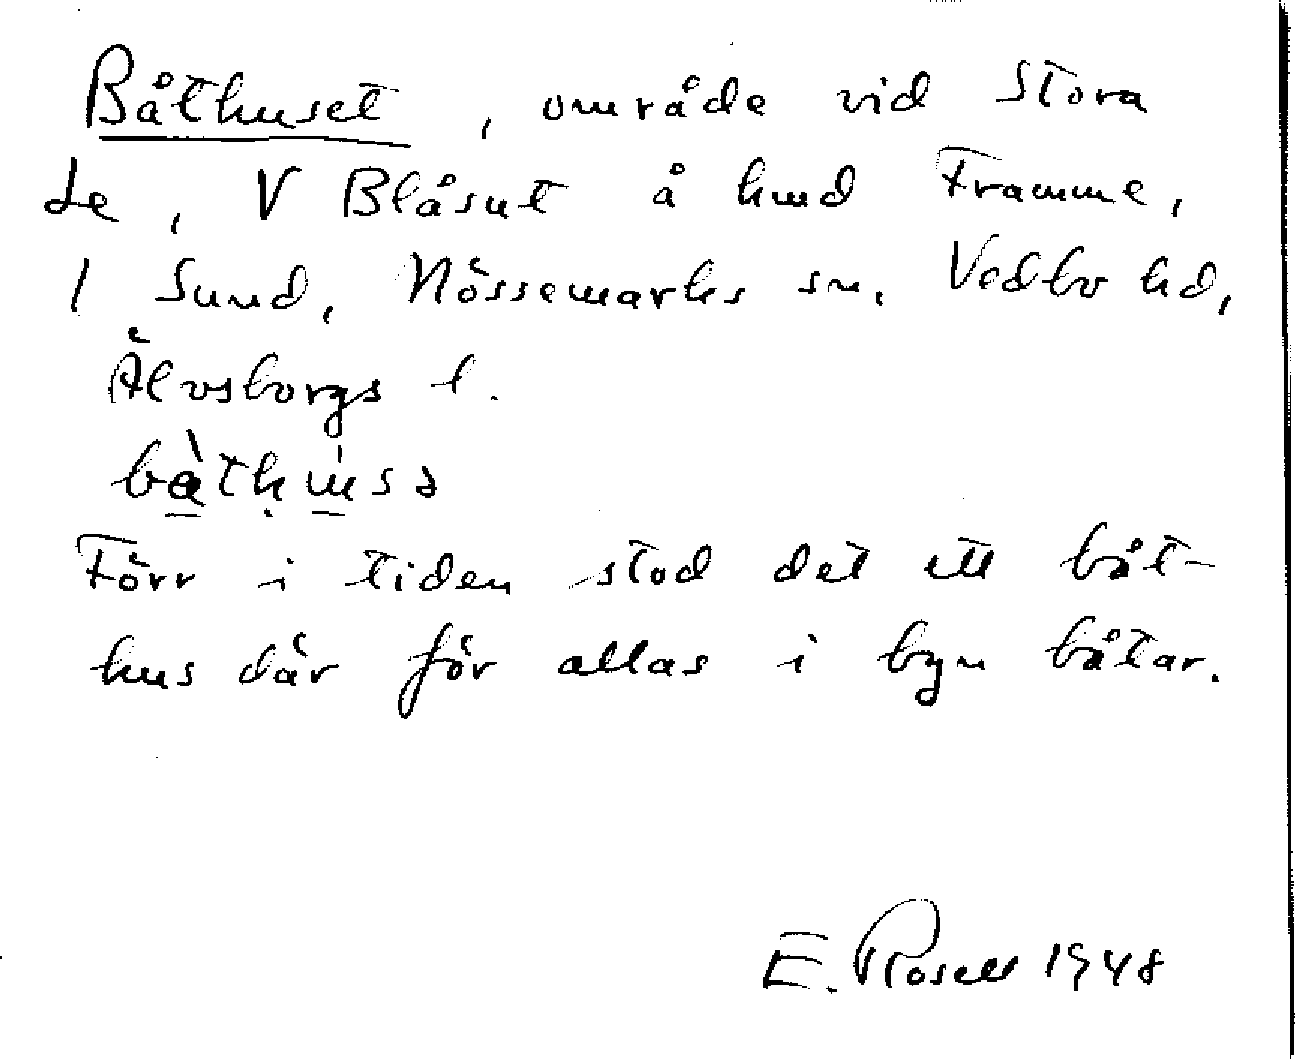 Båthuset, område vid Stora
Le, V Blåsut å hmd Framme,
1 Sund, Nössemarks sn. Vedbo hd,
Älvsborgs l.
Förr i tiden stod det ett båt-
hus där för allas i byn båtar.
E. Rosell 1948